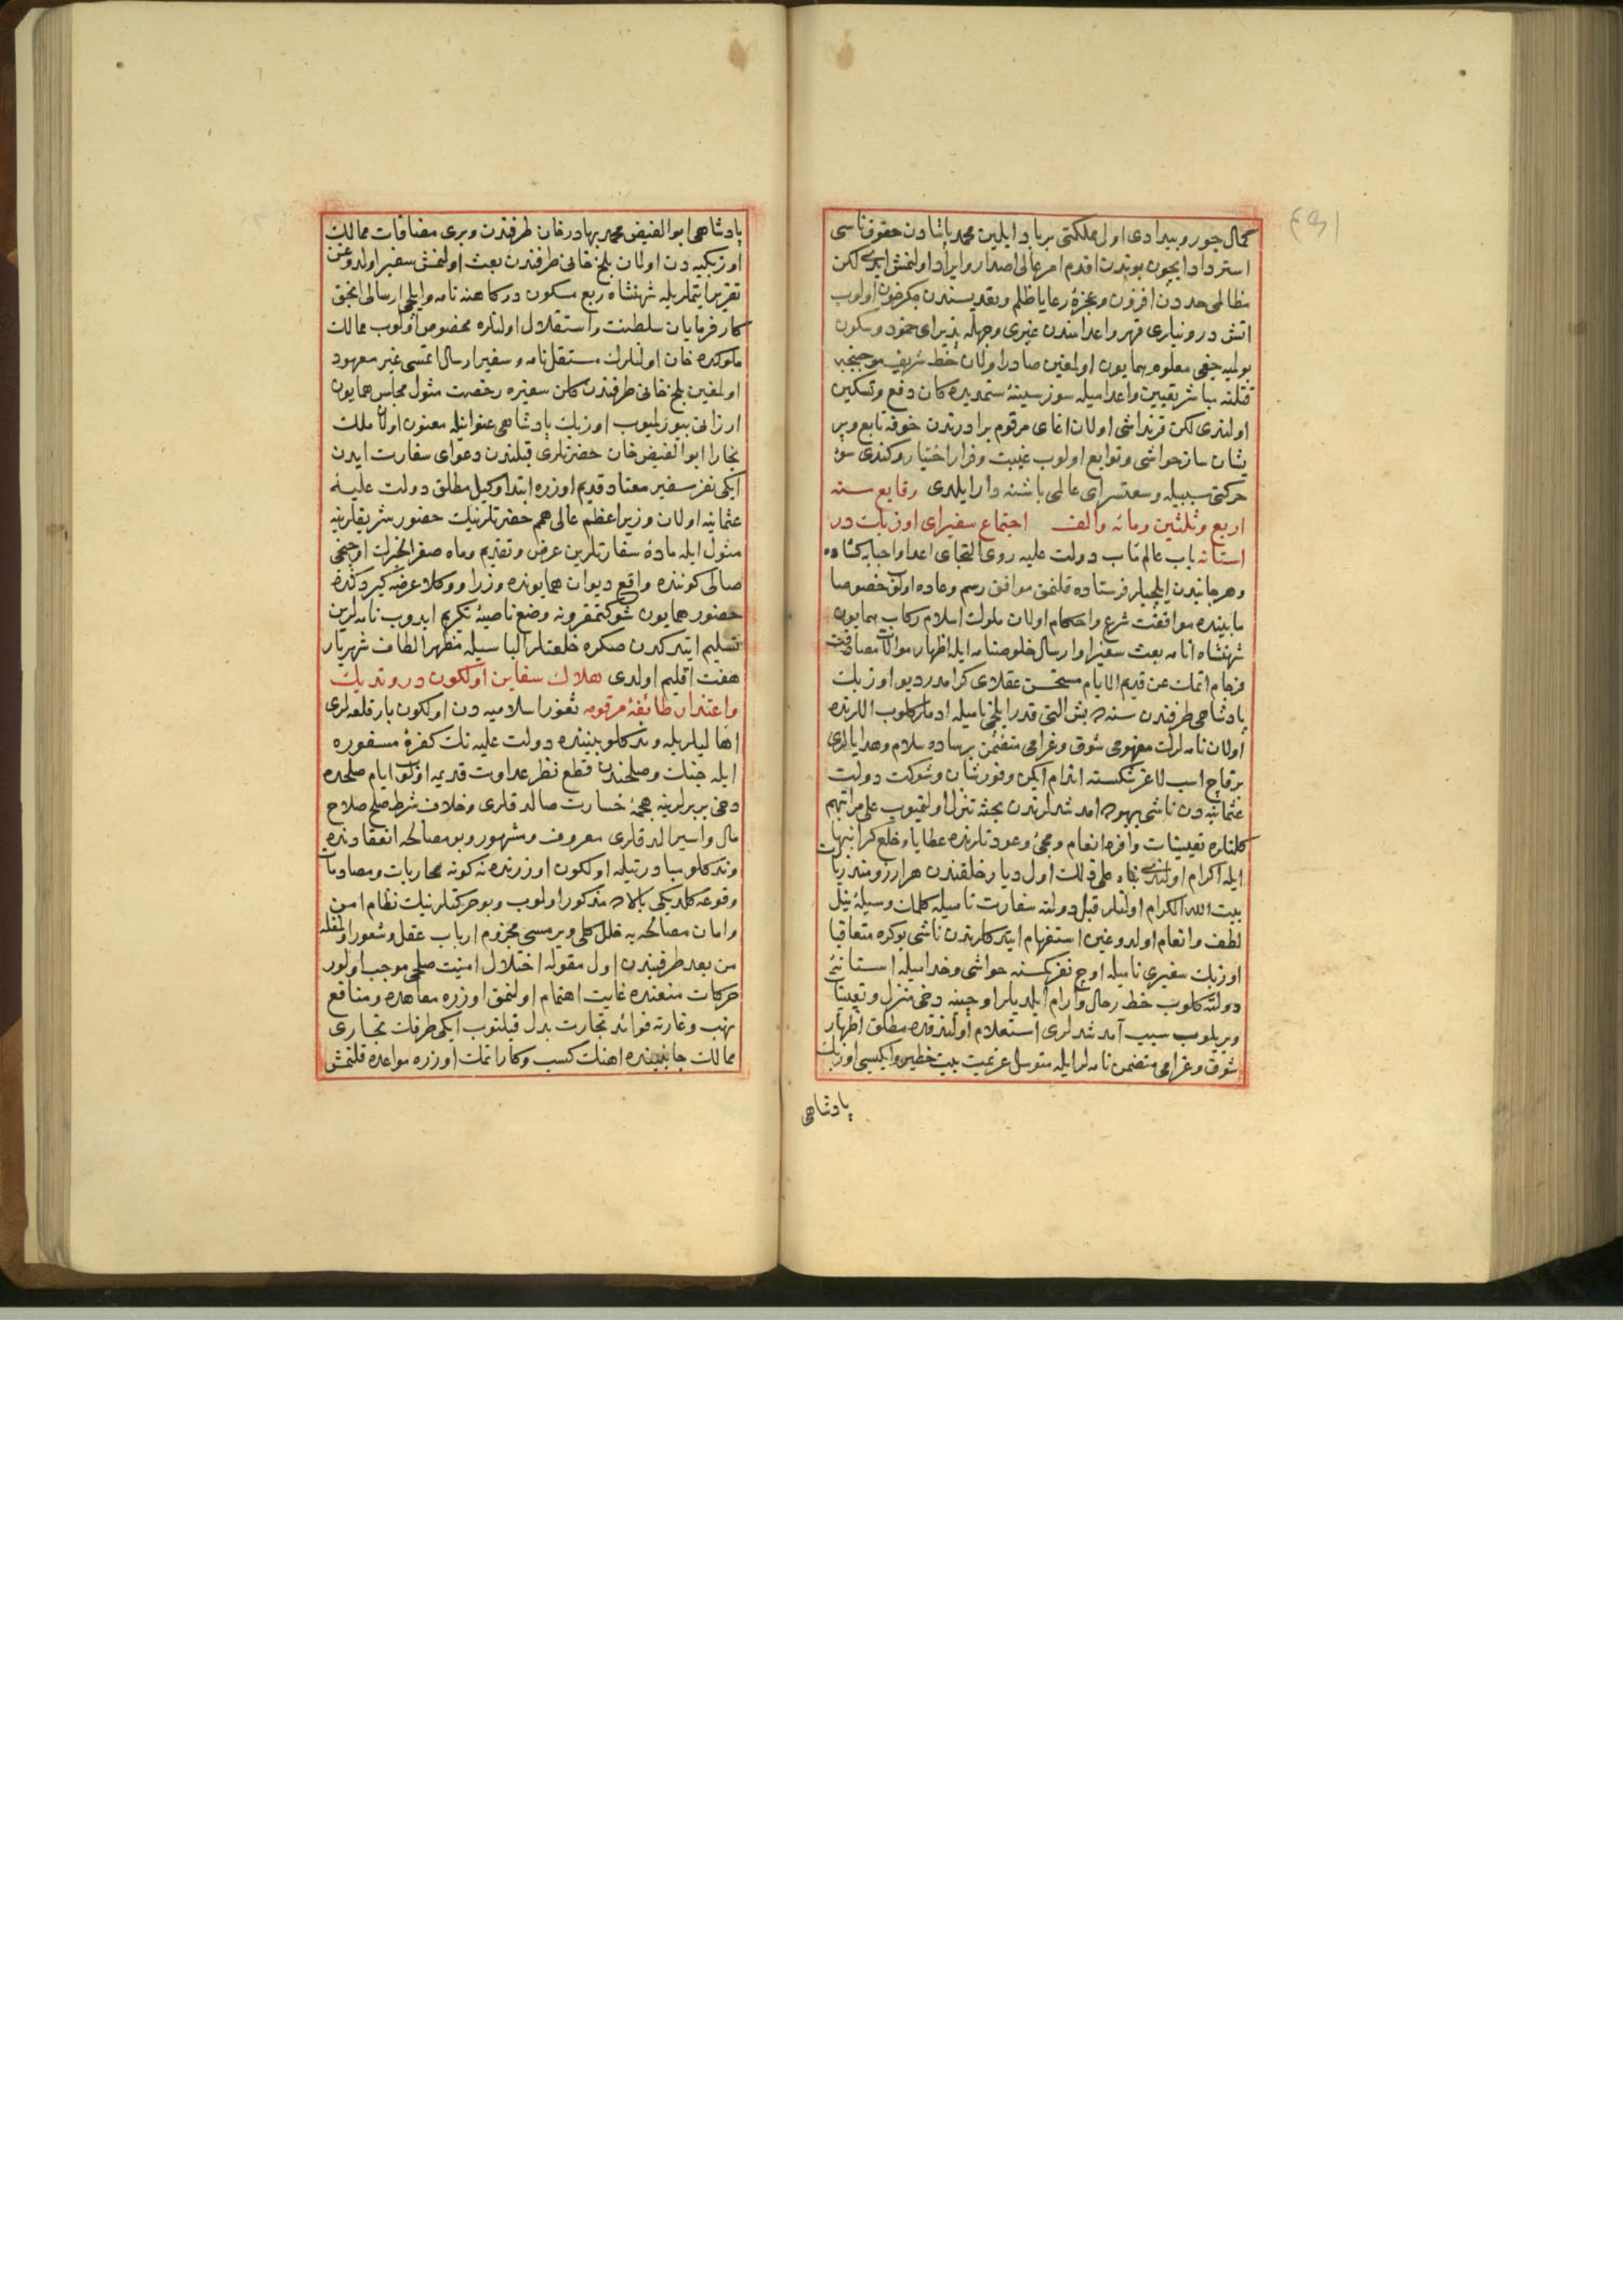 كمال جور وبيدادى اول مملكتى برباد ايلين محمد پاشادن حقوق ناسى
استرداد ايچون بوندن اقدم امر عالى اصدار وايراد اولنمش ايدى لكن
مظالمى حددن افزون وعجزۀ رعايا ظلم وتعديسندن جكرخون اولوب
اتش درونيارى قهر واعدامندن غيرى وجهله پذيراى خمود وسكون
بولميه جغى معلوم همايون اولمغين صادر اولان خط شريف موجبنجه
قتلنه مباشر تعيين واعداميله سوز سينۀ ستمديده كان دفع وتسكين
اولندى لكن قرنداشى اولان اغاى مرقوم برادرندن خوفه تابع وپر
يشان ساز حواشى وتوابع اولوب غيبت وفرار اختيار وكندى سوء
حركتى سببيله وسعتسراى عالمى باشنه دار ايلدى وقايع سنه
اربع وثلثين ومائه والف اجتماع سفيراى اوزبك در
استانه باب عالم ماب دولت عليه روى التجاى اعدا واحبابه كشاده
وهر جانبدن ايلچيلر فرستاده قلنمق موافق رسم وعاده اولوب خصوصا
مابينده موافقت شرع واحكام اولان ملوك اسلام ركاب همايون
شهنشاه انامه بعث سفيرا وارسال خلوصنامه ايله اظهار موالات مصافقت
فرجام اتمك عن قديم الايام مستحسن عقلاى كرامدر ديو اوزبك
پادشاهى طرفندن سنه ده بش التى قدر ايلچى ناميله ادملر كلوب اللرنده
اولان نامه لرك مفهومى شوق وغرامى متضمن برساده سلام وهدايالرى
برقاج اسب لاغر شكسته اندام ايكن وفور شان وشوكت دولت
عثمانيه دن ناشى بيهوده امد شدلرندن بحثه تنزل اولنميوب على مراتبهم
كلنلره تعيينات وافره انعام ومجئ وعودتلرنده عطايا وخلع كرانبها
ايله اكرام اولندى بناء على ذلك اول ديار خلقندن هر ارزومند زيارت
بيت الله الكرام اولنلر قبل دولته سفارت ناميله كلمك وسيلۀ نيل
لطف وانعام اولدوغين استفهام ايتدكلرندن ناشى بوكره متعاقبا
اوزبك سفيرى ناميله اوچ نفر كمسنه حواشى وخداميله استانۀ
دولته كلوب حط رحال وآرام ايلديلر اوچينه دخى منزل وتعيينات
ويريلوب سبب آمد شدلرى استعلام اولندقده مطلق اظهار
شوق وغرامى متضمن نامه لر ايله متوسل عزيمت بيت خطير وايكيسى اوزبك
پادشاهى
پادشاهى ابوالفيض محمد بهادر خان طرفندن وبرى مضافات ممالك
اوزبكيه دن اولان بلخ خانى طرفندن بعث اولنمش سفير اولدوغن
تقرير ايتملريله شهنشاه ربع مسكون دركاهنه نامه وايلچى ارسالى انجق
كارفرمايان سلطنت واستقلال اولنلره مخصوص اولوب ممالك
ملوكده خان اولنلرك مستقل نامه وسفير ارسال اتمسى غير معهود
اولمغين بلخ خانى طرفندن كلن سفيره رخصت مثول مجلس همايون
ارزانى بيورلميوب اوزبك پادشاهى عنوانيله معنون اولان ملك
بخارا ابوالفيض خان حضرتلرى قبلندن دعواى سفارت ايدن
ايكى نفر سفير معتاد قديم اوزره ابتدا وكيل مطلق دولت عليۀ
عثمانيه اولان وزير اعظم عالى همم حضرتلرينك حضور شريفلرينه
مثول ايله مادۀ سفارتلرين عرض وتقديم وماه صفر الخيرك اوچنجى
صالى كوننده واقع ديوان همايونده وزرا ووكلا عرضه كيردكده
حضور همايون شوكتمقرونه وضع ناصيۀ تكريم ايدوب نامه لرين
تسليم ايتدكدن صكره خلعتلر الباسيله مظهر الطاف شهريار
هفت اقليم اولدى هلاك سفاين اولكون در ونديك
واعتذار طائفۀ مرقومه ثغور اسلاميه دن اولكون بار قلعه لرى
اهاليلريله وندكلو بيننده دولت عليه نك كفرۀ مسفوره
ايله جنك وصلحندن قطع نظر عداوت قديمه اولوب ايام صلحده
دخى بربرلرينه هجمۀ خسارت صالدقلرى وخلاف شرط صلح صلاح
مال واسير الدقلرى معروف ومشهور وبو مصالحه انعقادنده
وندكلو مبادرتيله اولكون اوزرنده نه كونه محاربات ومصادمات
وقوعه كلديكى بالاده مذكور اولوب وبو حركتلرينك نظام امن
وامان مصالحه يه خلل كلى ويرمسى مجزوم ارباب عقل وشعور اولمغله
من بعد طرفيندن اول مقوله اختلال امنيت صلحى موجب اولور
حركات منعنده غايت اهتمام اولنمق اوزره معاهده ومنافع
نهب وغارته فوائد تجارت بدل قيلنوب ايكى طرفك تجارى
ممالك جانبينده اهنك كسب وكار اتمك اوزره مواعده قلنمش